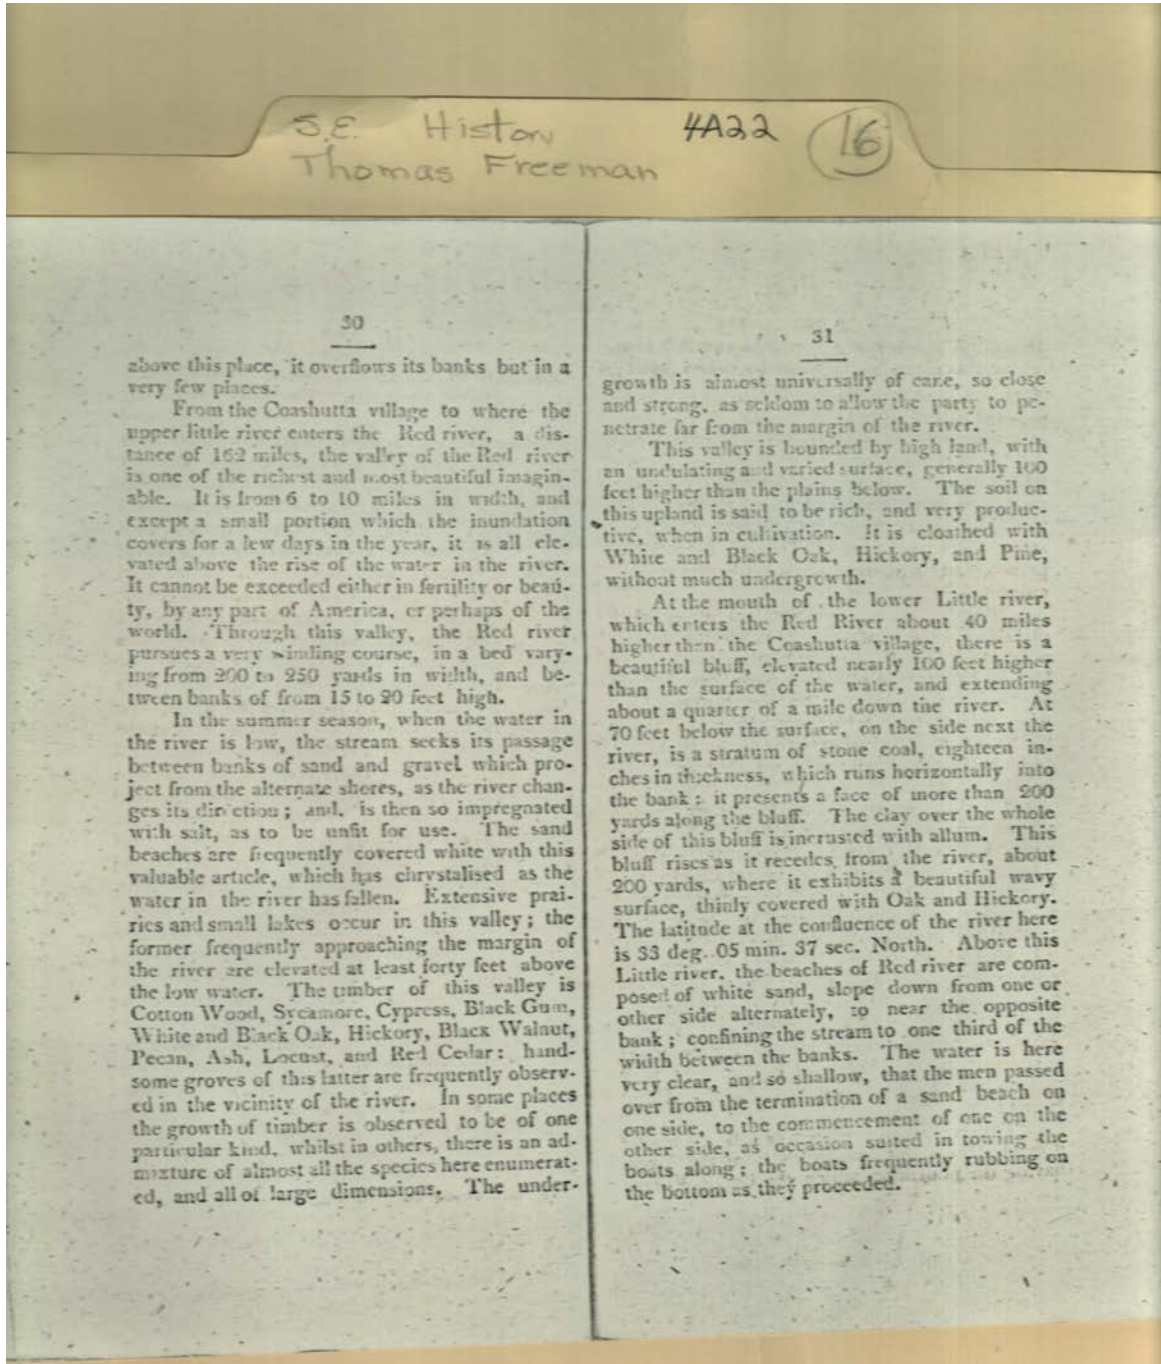 S.E. History 4A22 16
Thomas Freeman
30
above this place, it overflows its banks but in a
very few places.
From the Coashutta village to where the
upper little river enters the Red river, a dis-
tance of 162 miles, the valley of the Red river
is one of the richest and most beautiful imagin-
able. It is from 6 to 10 miles in width, and
except a small portion which the inundation
covers for a few days in the year, it is all ele-
vated above the rise of the water in the river.
It cannot be exceeded either in fertility or beau-
ty, by any part of America, or perhaps of the
world. Through this valley, the Red river
pursues a very winding course, in a bed vary-
ing from 200 to 250 yards in width, and be-
tween banks of from 15 to 20 feet high.
In the summer season, when the water in
the river is low, the stream seeks its passage
between banks of sand and gravel which pro-
ject from the alternate shores, as the river chan-
ges its direction; and, is then so impregnated
with salt, as to be unfit for use. The sand
beaches are frequently covered white with this
valuable article, which has chrystalised as the
water in the river has fallen. Extensive prai-
ries and small lakes occur in this valley; the
former frequently approaching the margin of
the river are elevated at least forty feet above
the low water. The timber of this valley is
Cotton Wood, Sycamore, Cypress, Black Gum,
White and Black Oak, Hickory, Black Walnut,
Pecan, Ash, Locust, and Red Cedar: hand-
some groves of this latter are frequently observ-
ed in the vicinity of the river. In some places
the growth of timber is observed to be of one
particular kind, whilst in others, there is an ad-
mixture of almost all the species here enumerat-
ed, and all of large dimensions. The under-
31
growth is almost universally of cane, so close
and strong, as seldom to allow the party to pe-
netrate far from the margin of the river.
This valley is bounded by high land, with
an undulating and varied surface, generally 100
feet higher than the plains below. The soil on
this upland is said to be rich, and very produc-
tive, when in cultivation. It is cloathed with
White and Black Oak, Hickory, and Pine,
without much undergrowth.
At the mouth of the lower Little river,
which enters the Red River about 40 miles
higher then the Coashutta village, there is a
beautiful bluff, elevated nearly 100 feet higher
than the surface of the water, and extending
about a quarter of a mile down the river. At
70 feet below the surface, on the side next the
river, is a stratum of stone coal, eighteen in-
ches in thickness, which runs horizontally into
the bank: it presents a face of more than 200
yards along the bluff. The clay over the whole
side of this bluff is incrusted with allum. This
bluff rises as it recedes from the river, about
200 yards, where it exhibits a beautiful wavy
surface, thinly covered with Oak and Hickory.
The latitude at the confluence of the river here
is 33 deg. 05 min. 37 sec. North. Above this
Little river, the beaches of Red river are com-
posed of white sand, slope down from one or
other side alternately, to near the opposite
bank; confining the stream to one third of the
width between the banks. The water is here
very clear, and so shallow, that the men passed
over from the termination of a sand beach on
one side, to the commencement of one on the
other side, as occasion suited in towing the
boats along; the boats frequently rubbing on
the bottom as they proceeded.